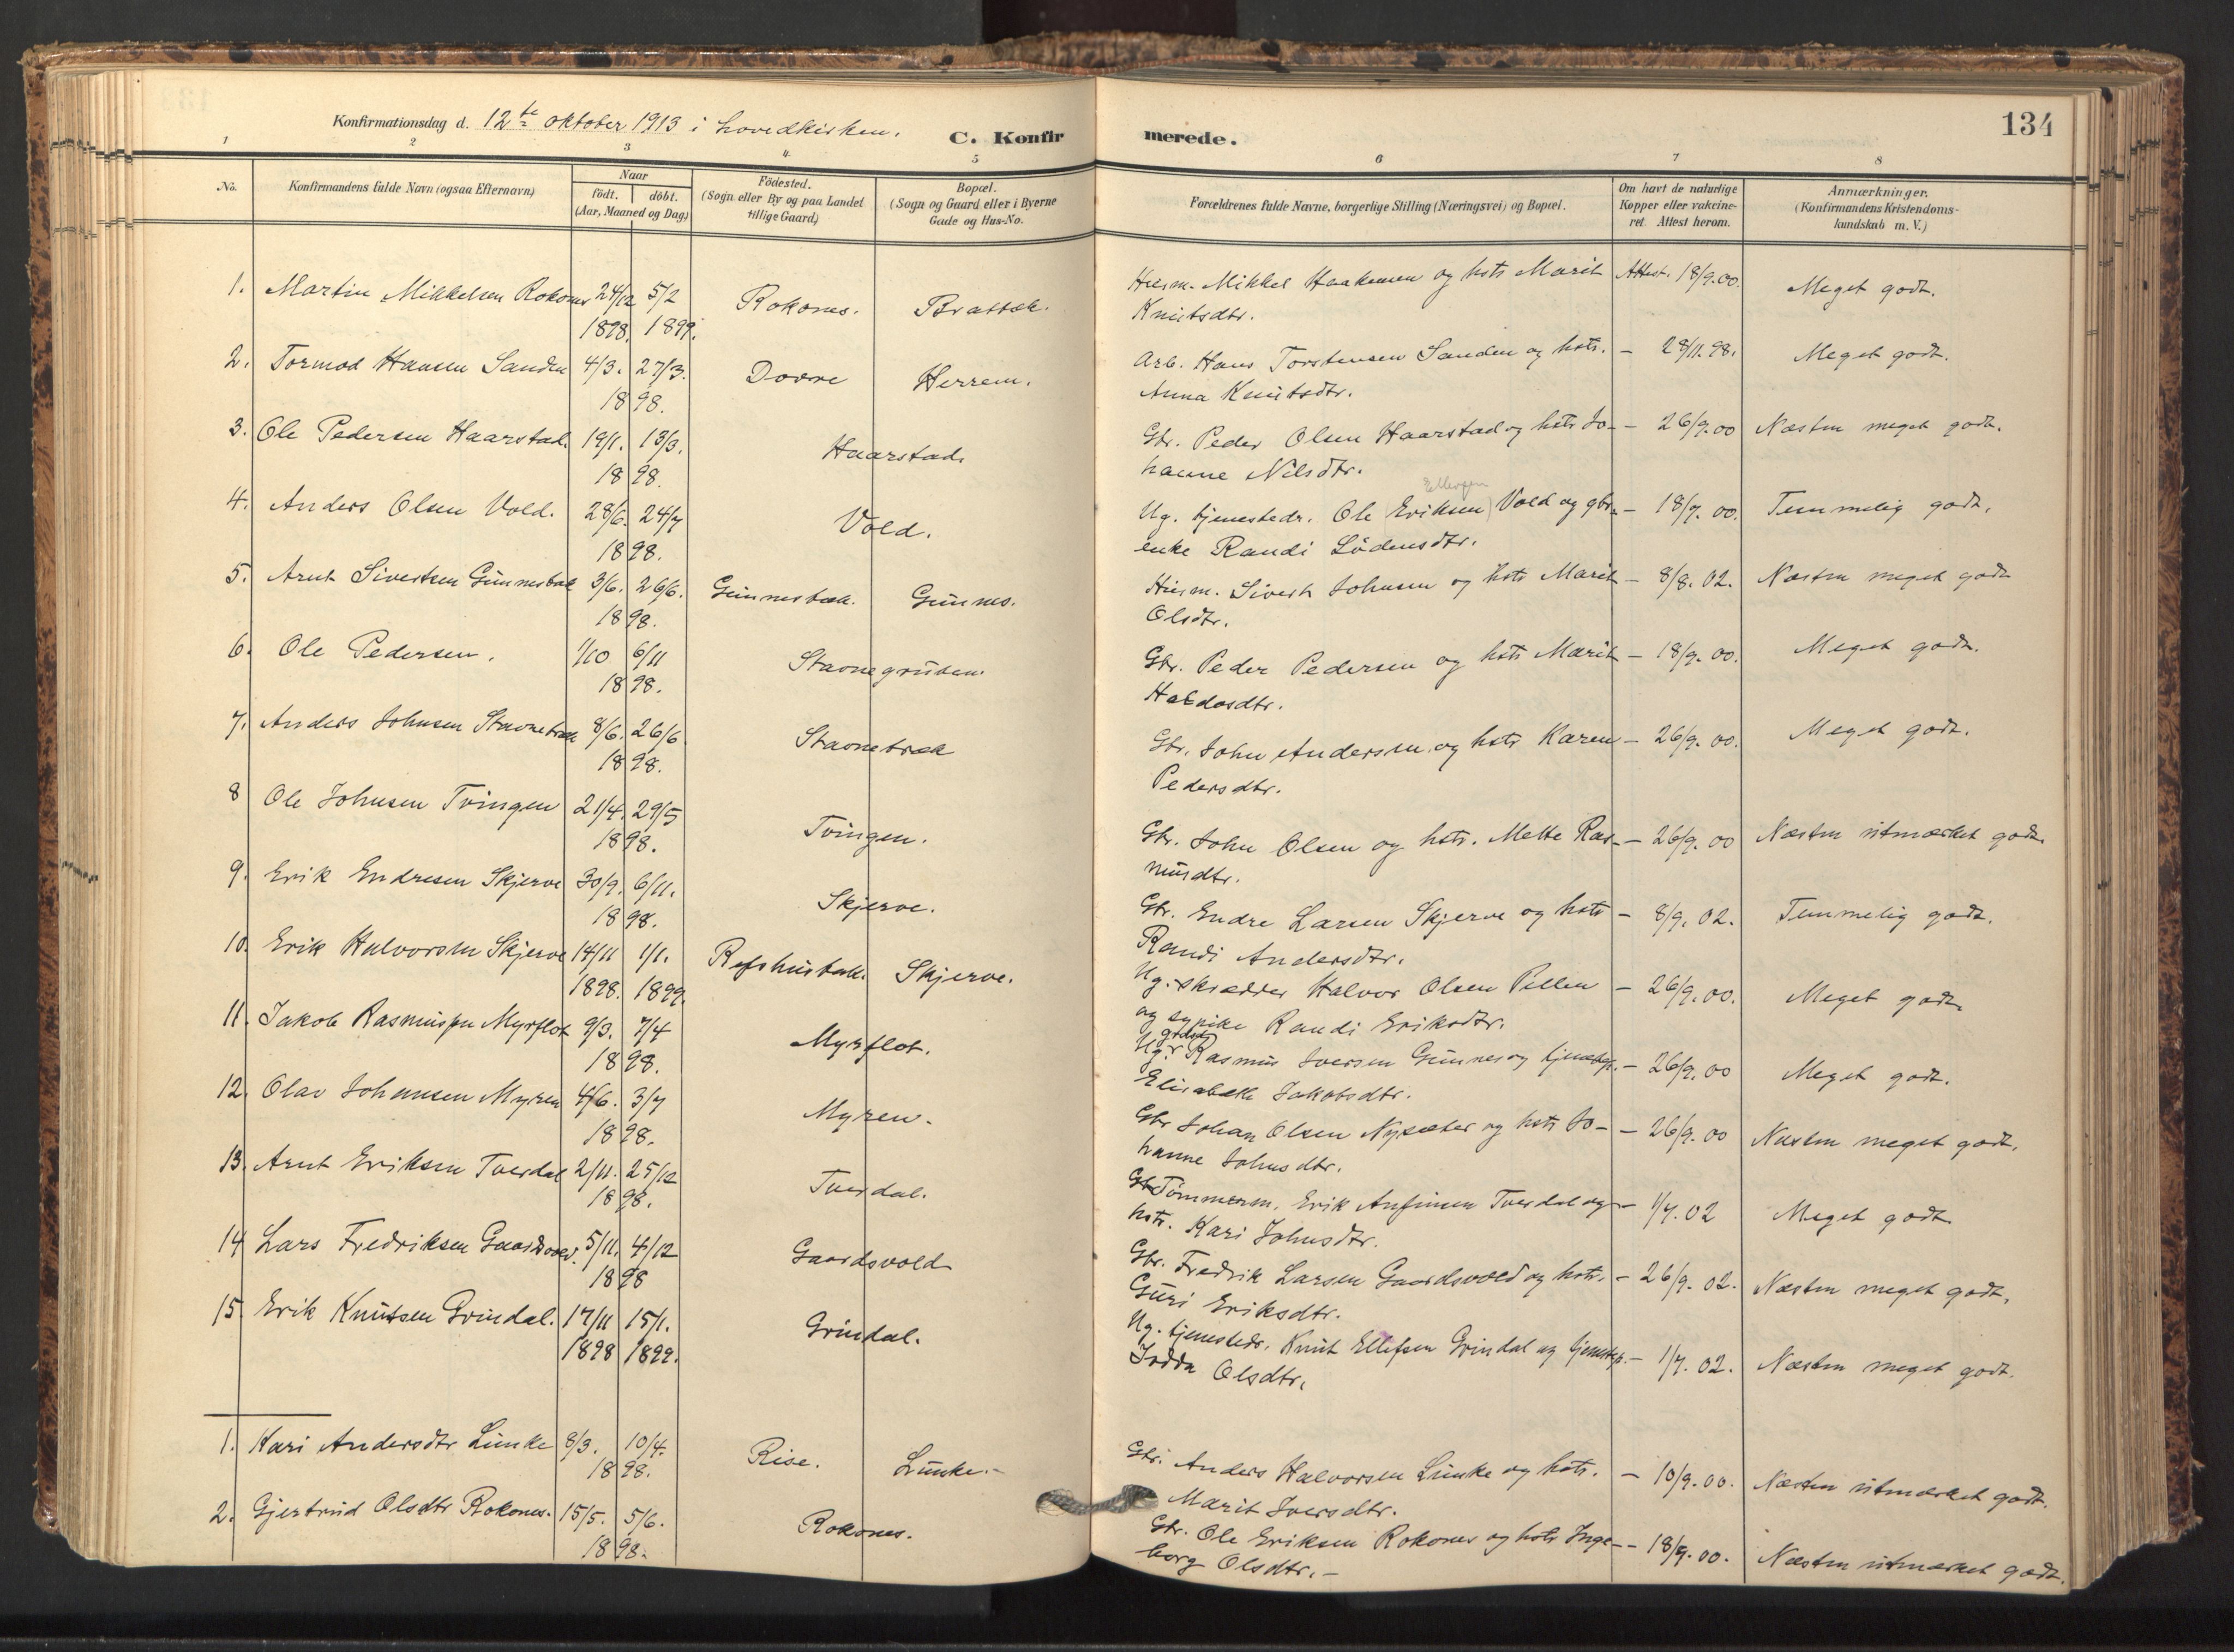 134
Konfirmationsdag d. 12te oktober 1913 i hovedkirken.
C. Konfirmerede.
1 2 3 4 5 6 7 8
No. | Konfirmandens fulde Navn (ogsaa Efternavn) | Naar födt. döbt. (Aar, Maaned og Dag) | Födested. (Sogn eller By og paa Landet tillige Gaard) | Bopæl. (Sogn og Gaard eller i Byerne Gade og Hus-No. | Forældrenes fulde Navne, borgerlige Stilling (Næringsvei) og Bopæl. | Om havt de naturlige Kopper eller vakcineret. Attest herom. | Anmærkninger. (Konfirmandens Kristendomskundskab m. V.)
1. Martin Mikkelsen Rokones 24/12 5/2 Rokones. Brattsk. Husm. Mikkel Haakensen og hstr Marit Attest. 18/9.00. Meget godt.
1898. 1899. Knutsdtr.
2. Tormod Hansen Sanden 4/3. 27/3. Dovre Herrem. Arb. Hans Torstensen Sanden og hstr. – 28/11.98. Meget godt.
1898. Anna Knutsdtr.
3. Ole Pedersen Haarstad. 19/1. 13/3. Haarstad. Gbr. Peder Olsen Haarstad og hstr Jo- – 26/9.00 Næsten meget godt.
1898. hanne Nilsdtr.
Ellevsen
4. Anders Olsen Vold. 28/6. 24/7 Vold. Ug. tjenestedr. Ole (Eriksen) Vold og gbr.- – 18/9.00. Temmelig godt.
1898. enke Randi Lödensdtr.
5. Arnt Sivertsen Gunnesbak 3/6. 26/6. Gunnesbak. Gunnes. Husm. Sivert Johnsen og hstr Marit – 8/8.02. Næsten meget godt
1898. Olsdtr.
6. Ole Pedersen. 1/10 6/11 Stavnegruben. Gbr. Peder Pedersen og hstr Marit – 18/9.00. Meget godt.
1898. Haldosdtr.
7. Anders Johnsen Stavnetræ 8/6. 26/6 Stavnetræa Gbr. John Andersen og hstr Karen – 26/9.00. Meget godt.
1898. Pedersdtr.
8 Ole Johnsen Tvingen 21/4. 29/5 Tvingen. Gbr. John Olsen og hstr. Mette Ras- – 26/9.00 Næsten utmerket godt.
1898. musdtr.
9. Erik Endresen Skjerve 30/9. 6/11. Skjerve. Gbr. Endre Larsen Skjerve og hstr – 8/9.02. Temmelig godt.
1898. Randi Andersdtr.
10. Erik Halvorsen Skjerve 14/11 1/1. Refshusbak. Skjerve. Ug. skrædder Halvor Olsen Pellen – 26/9.00. Meget godt.
1898. 1899. og sypike Randi Eriksdtr.
11. Jakob Rasmussen Myrflot 9/3. 7/4 Myrflot. Ug. Rasmus Iversen Gunnes og tjenestep. – 26/9.00 Meget godt.
1898. Elisabeth Jakobsdtr.
12. Olav Johansen Myren 4/6. 3/7 Myren. Gbr Johan Olsen Nysæter og hstr Jo- – 26/9.00 Næsten meget godt.
1898. hanne Johnsdtr.
13. Arnt Eriksen Tverdal 2/11. 25/12 Tverdal. Tömmerm. Erik Anfinsen Tverdal og – 1/7.02 Meget godt
1898. hstr. Kari Johnsdtr.
14 Lars Fredriksen Gaardsvold. 5/11. 4/12 Gaardsvold Gbr. Fredrik Larsen Gaardsvold og hstr. – 26/9.02. Næsten meget godt.
1898 Guri Eriksdtr.
15. Erik Knutsen Grindal. 17/11 15/1. Grindal. Ug. tjenestedr. Knut Ellefsen Grindal og tjenestep. – 1/7.02. Næsten meget godt.
1898 1899. Olsdtr.
1. Kari Andersdtr Lunke 8/3. 10/4. Rise. Lunke.- Gbr. Anders Halvorsen Lunke og hstr. – 10/9.00. Næsten utmerket godt.
1898. Marit Iversdtr.
2. Gjertrud Olsdtr Rokones. 15/5. 5/6. Rokones. Gbr. Ole Eriksen Rokones og hstr Inge- – 18/9.00. Næsten utmærket godt.
1898. borg Olsdtr.-